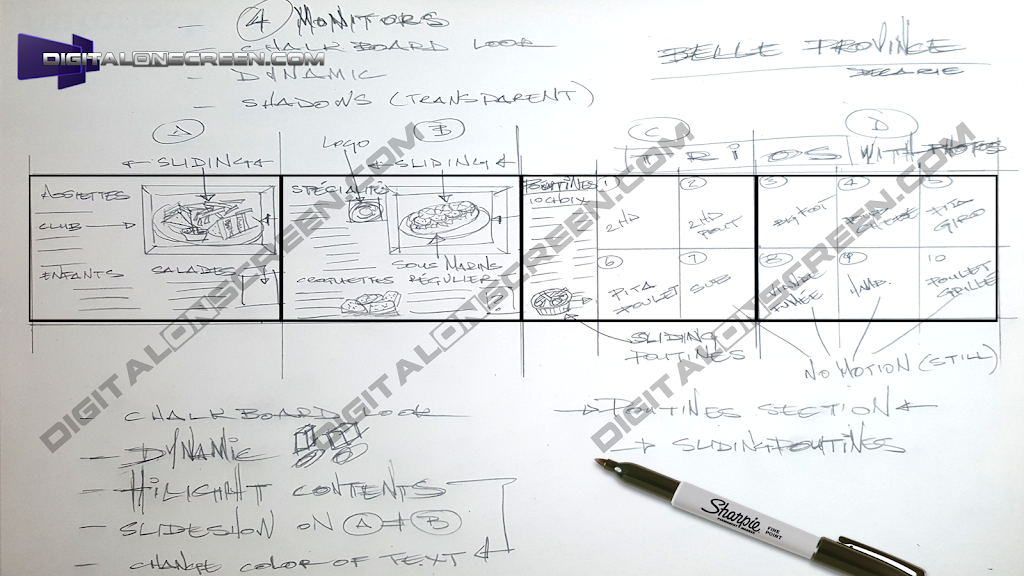 - 4 MONITORS
- CHALK BOARD LOOK
DIGITALONSCREEN.COM
- DYNAMIC
- SHADOWS (TRANSPARENT)
BELLE PROVINCE
DECARIE
A
B
C
D
SLIDING
LOGO
SLIDING
TRIOS WITH PHOTOS
ASSIETTES
CLUB
ENFANTS
SALADES
SPÉCIALITÉS
SOUS MARINS
CROQUETTES
RÉGULIER
POUTINES
10 CHOIX
1
2 HD
2
2 HD
POUT
3
BIGFOOT
4
5
PITA
GIRO
6
PITA
POULET
7
SUB
8
VIANDE
FUMÉE
9
HAMB.
10
POULET
GRILLÉ
SLIDING
POUTINES
NO MOTION (STILL)
- CHALK BOARD LOOK
- DYNAMIC
- HILIGHT CONTENTS
- SLIDESHOW ON A B
- CHANGE COLOR OF TEXT
POUTINES SECTION
SLIDING POUTINES
Sharpie
PERMANENT MARKER
FINE
POINT
DIGITALONSCREEN.COM
DIGITALONSCREEN.COM